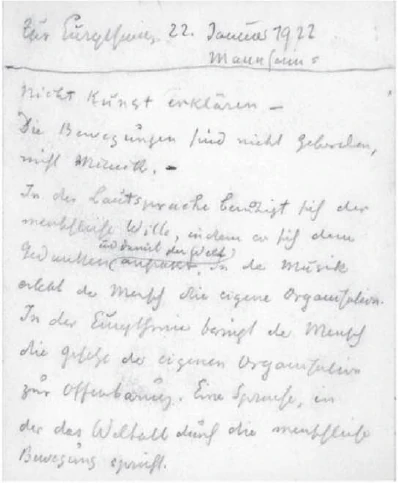 Zur Eurythmie. 22. Januar 1922
Mannheim =
Nicht Kunst erklären –
Die Bewegungen sind nicht Geberden,
nicht Mimik. –
In der Lautsprache der
menschliche Wille, indem er sich dem
und damit der Welt
Gedanken anpasst. In der Musik
erlebt der Mensch die eigene Organisation.
In der Eurythmie bringt der Mensch
die Gesetze der eigenen Organisation
zur Offenbarung. Eine Sprache, in
der das Weltall durch die menschliche
Bewegung spricht.